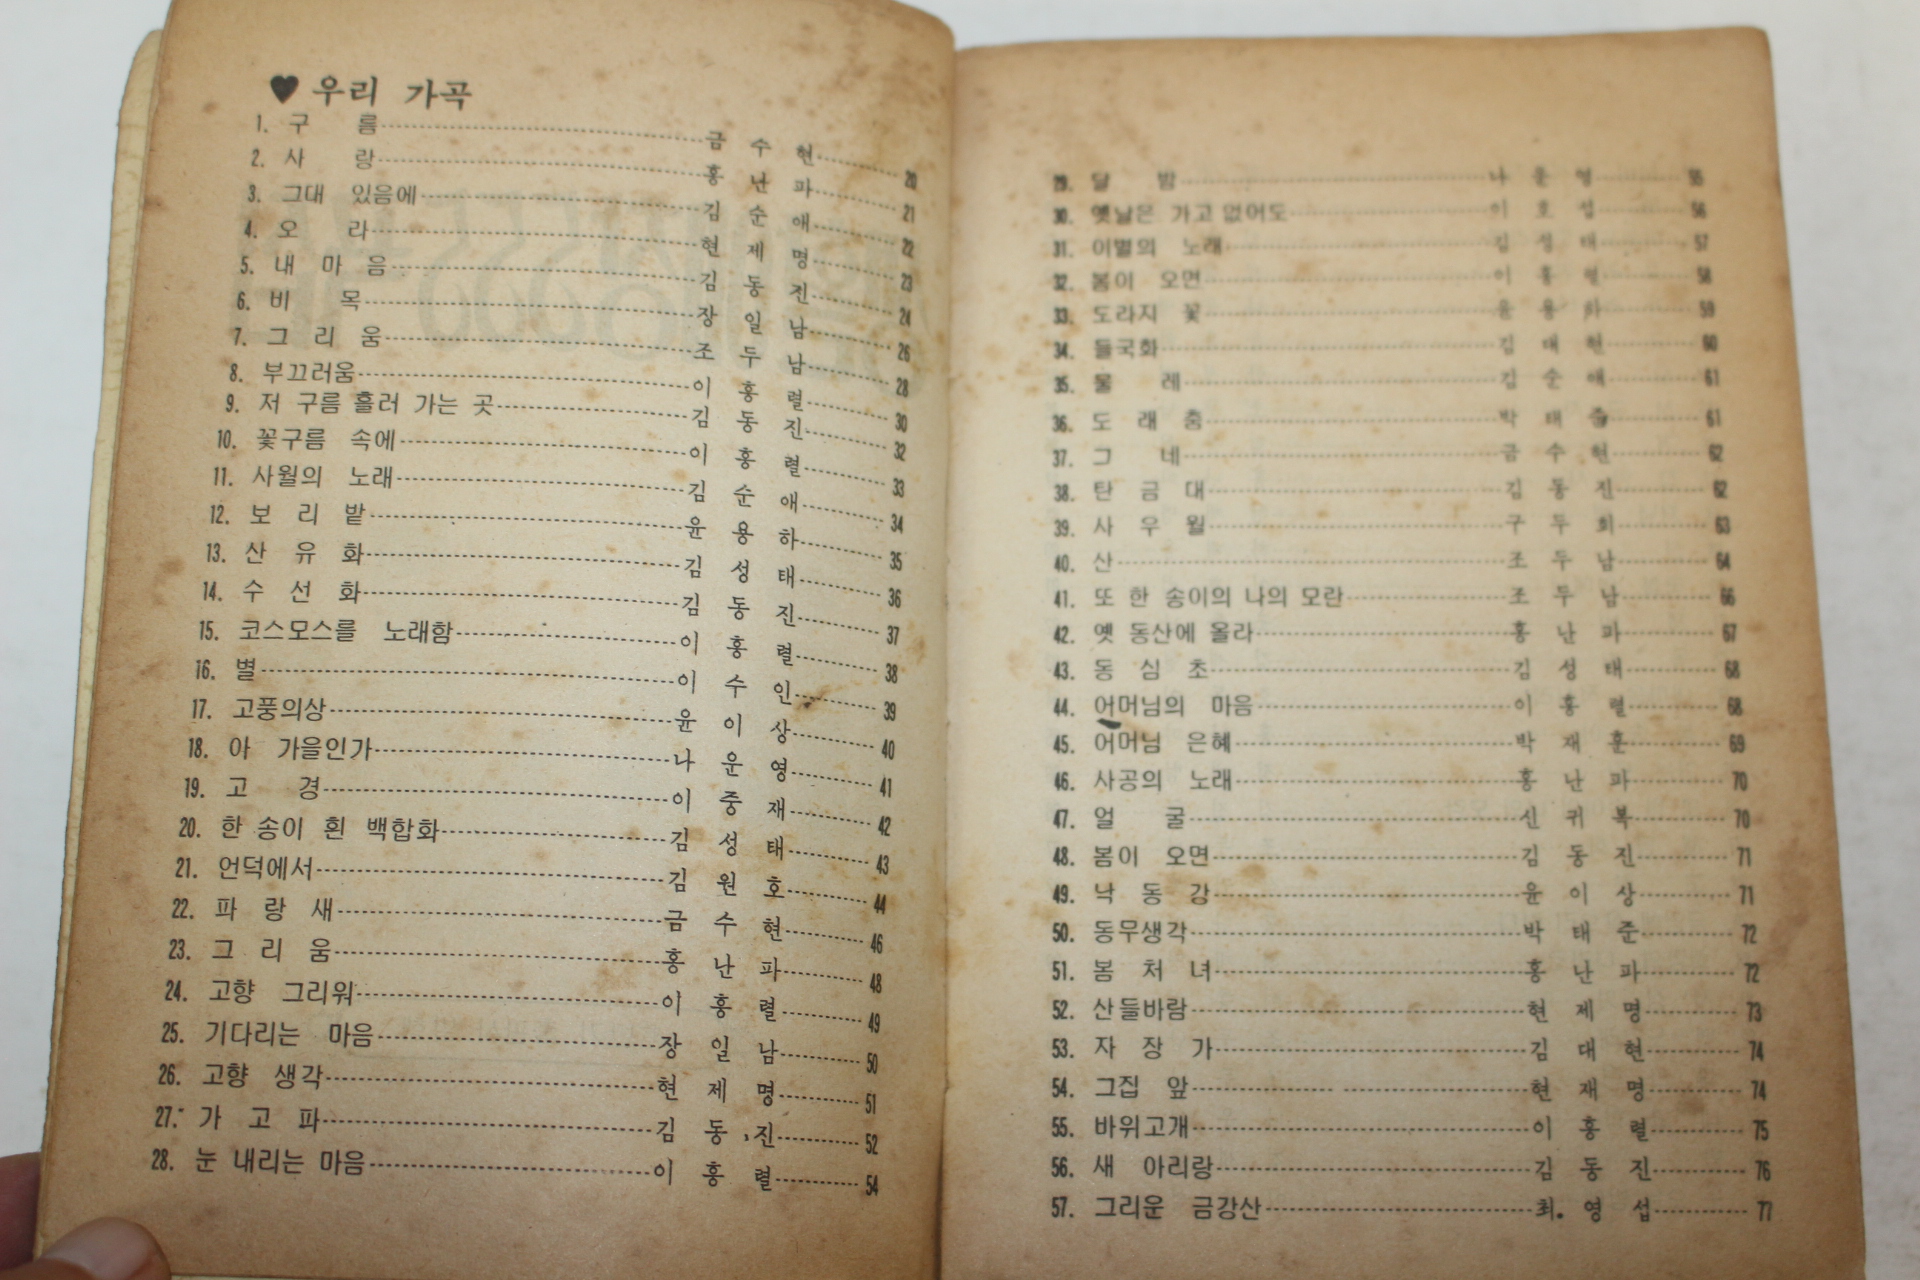 ♥ 우리 가곡
1. 구 름 금 수 현 20
2. 사 랑 홍 난 파 21
3. 그대 있음에 김 순 애 22
4. 오 라 현 제 명 23
5. 내 마 음 김 동 진 24
6. 비 목 장 일 남 26
7. 그 리 움 조 두 남 28
8. 부끄러움 이 흥 렬 30
9. 저 구름 흘러 가는 곳 김 동 진 32
10. 꽃구름 속에 이 흥 렬 33
11. 사월의 노래 김 순 애 34
12. 보 리 밭 윤 용 하 35
13. 산 유 화 김 성 태 36
14. 수 선 화 김 동 진 37
15. 코스모스를 노래함 이 흥 렬 38
16. 별 이 수 인 39
17. 고풍의상 윤 이 상 40
18. 아 가을인가 나 운 영 41
19. 고 경 이 중 재 42
20. 한 송이 흰 백합화 김 성 태 43
21. 언덕에서 김 원 호 44
22. 파 랑 새 금 수 현 46
23. 그 리 움 홍 난 파 48
24. 고향 그리워 이 흥 렬 49
25. 기다리는 마음 장 일 남 50
26. 고향 생각 현 제 명 51
27. 가 고 파 김 동 진 52
28. 눈 내리는 마음 이 흥 렬 54
29. 달 밤 나 운 영 55
30. 옛날은 가고 없어도 이 호 섭 56
31. 이별의 노래 김 성 태 57
32. 봄이 오면 이 흥 렬 58
33. 도라지 꽃 윤 용 하 59
34. 들국화 김 대 현 60
35. 물 레 김 순 애 61
36. 도 래 춤 박 태 준 61
37. 그 네 금 수 현 62
38. 탄 금 대 김 동 진 62
39. 사 우 월 구 두 회 63
40. 산 조 두 남 64
41. 또 한 송이의 나의 모란 조 두 남 66
42. 옛 동산에 올라 홍 난 파 67
43. 동 심 초 김 성 태 68
44. 어머님의 마음 이 흥 렬 68
45. 어머님 은혜 박 재 훈 69
46. 사공의 노래 홍 난 파 70
47. 얼 굴 신 귀 복 70
48. 봄이 오면 김 동 진 71
49. 낙 동 강 윤 이 상 71
50. 동무생각 박 태 준 72
51. 봄 처 녀 홍 난 파 72
52. 산들바람 현 제 명 73
53. 자 장 가 김 대 현 74
54. 그집 앞 현 재 명 74
55. 바위고개 이 흥 렬 75
56. 새 아리랑 김 동 진 76
57. 그리운 금강산 최. 영 섭 77